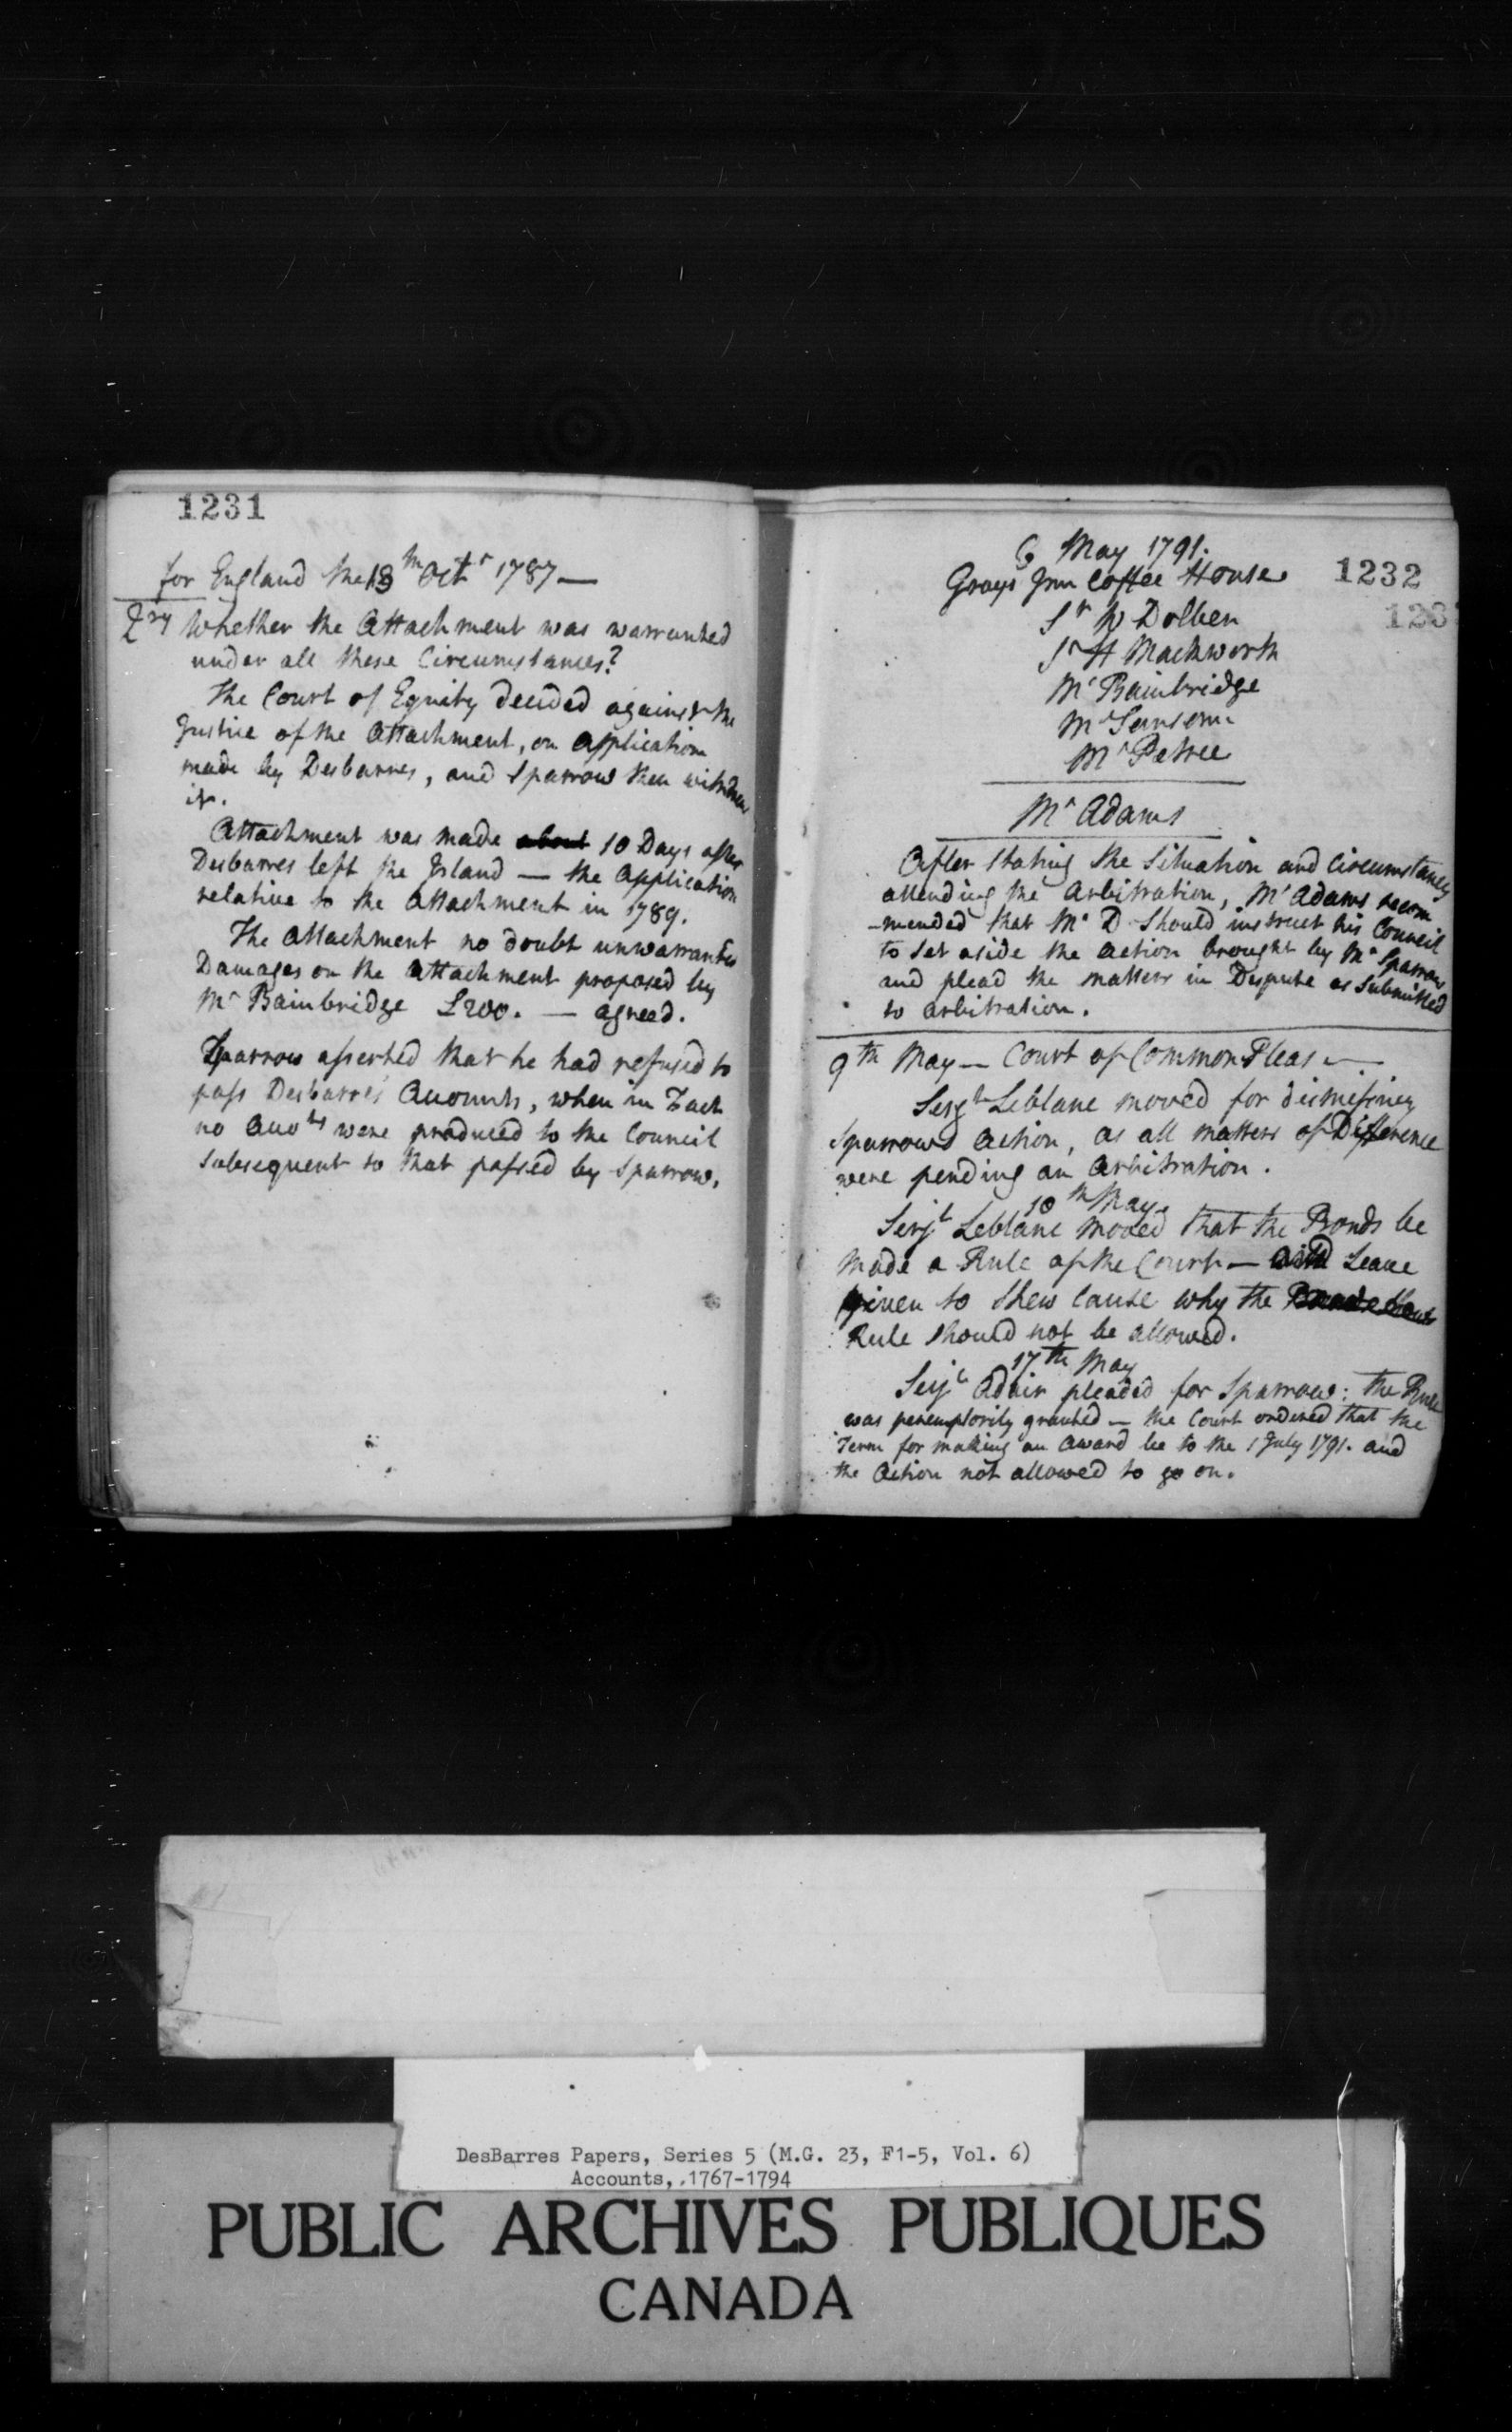 1231
for England the 13th Octr 1787 —
Qry Whether the Attachment was warranted
under all these Circumstances?
The Court of Equity decided against the
Justice of the Attachment, on Application
made by Desbarres, and Sparrow then withdrew
it.
Attachment was made about 10 Days after
Desbarres left the Island — the Application
relative to the Attachment in 1789.
The Attachment no doubt unwarranted
Damages on the Attachment proposed by
Mr Bainbridge £200. — agreed.
Sparrow asserted that he had refused to
pass Desbarres' Accounts, when in Fact
no Accots were produced to the Council
subsequent to that passed by Sparrow.
6 May 1791.
Grays Inn Coffee House
1232
Sr W Dolben
Sr H Mackworth
Mr Bainbridge
Mr Sansom
Mr Petree
Mr Adams
After stating the Situation and Circumstances
attending the Arbitration, Mr Adams recom
-mended that Mr D should instruct his Council
to set aside the Action brought by Mr Sparrow
and plead the matters in Dispute as Submitted
to arbitration.
9th May — Court of Common Pleas —
Serjt Leblanc moved for dismissing
Sparrows Action, as all matters of Difference
were pending an Arbitration.
10th May
Serjt Leblanc moved that the Bonds be
made a Rule of the Court — with Leave
given to shew Cause why the
Rule should not be allowed.
17th May
Serjt Adair pleaded for Sparrow: the Rule
was peremptorily granted — the Court ordered that the
Term for making an Award be to the 1 July 1791. and
the Action not allowed to go on.
DesBarres Papers, Series 5 (M.G. 23, F1-5, Vol. 6)
Accounts, 1767-1794
PUBLIC ARCHIVES PUBLIQUES
CANADA